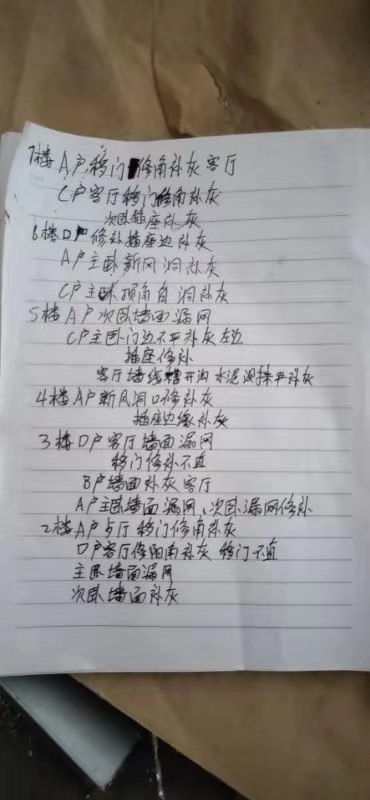 7楼A户,移门修角补灰客厅
C户客厅移门修角补灰
次卧插座补灰
6楼D户修补插座边补灰
A户主卧新风洞补灰
C户主卧顶角自洞补灰
5楼A户次卧墙面漏网
C户主卧门边不平补灰左边
插座修补
客厅墙线槽开沟水泥没抹平补灰
4楼A户新风洞口修补灰
插座边缘补灰
3楼D户客厅墙面漏网
移门修补不直
B户墙面补灰客厅
A户主卧墙面漏网、次卧漏网修补
2楼A户 厅移门修角补灰
D户客厅修阳角补灰 移门不直
主卧墙面漏网
次卧墙面补灰